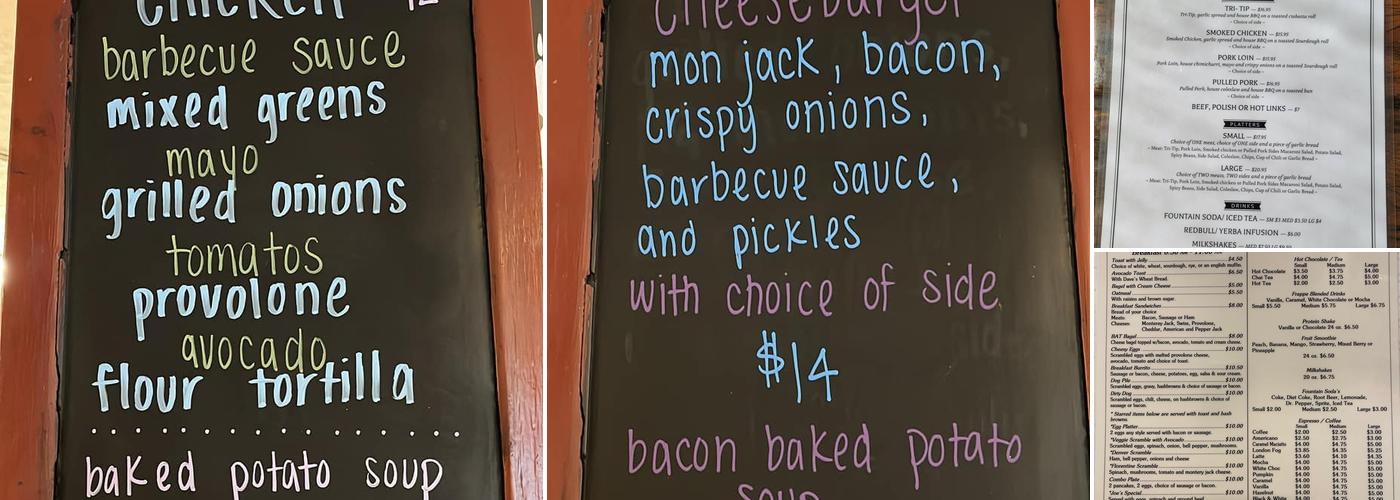 chicken
barbecue sauce
mixed greens
mayo
grilled onions
tomatos
provolone
avocado
flour tortilla
baked potato soup
cheeseburger
mon jack, bacon,
crispy onions,
barbecue sauce,
and pickles
with choice of side
$14
bacon baked potato
soup
TRI-TIP — $16.95
Tri-Tip, garlic spread and house BBQ on a toasted ciabatta roll
- Choice of side -
SMOKED CHICKEN — $15.95
Smoked Chicken, garlic spread and house BBQ on a toasted Sourdough roll
- Choice of side -
PORK LOIN — $15.95
Pork Loin, house chimichurri, mayo and crispy onions on a toasted Sourdough roll
- Choice of side -
PULLED PORK — $16.95
Pulled Pork, house coleslaw and house BBQ on a toasted bun
- Choice of side -
BEEF, POLISH OR HOT LINKS — $7
PLATTERS
SMALL — $17.95
Choice of ONE meat, choice of ONE side and a piece of garlic bread
- Meat: Tri-Tip, Pork Loin, Smoked chicken or Pulled Pork Sides Macaroni Salad, Potato Salad,
Spicy Beans, Side Salad, Coleslaw, Chips, Cup of Chili or Garlic Bread -
LARGE — $20.95
Choice of TWO meats, TWO sides and a piece of garlic bread
- Meat: Tri-Tip, Pork Loin, Smoked chicken or Pulled Pork Sides Macaroni Salad, Potato Salad,
Spicy Beans, Side Salad, Coleslaw, Chips, Cup of Chili or Garlic Bread -
DRINKS
FOUNTAIN SODA/ ICED TEA — SM $3 MED $3.50 LG $4
REDBULL/ YERBA INFUSION — $6.00
MILKSHAKES — MED $7.50 LG
Toast with Jelly $4.50
Choice of white, wheat, sourdough, rye, or an english muffin.
Avocado Toast $6.50
With Dave's Wheat Bread.
Bagel with Cream Cheese $5.00
Oatmeal $5.50
With raisins and brown sugar.
Breakfast Sandwiches $8.00
Bread of your choice
Meats: Bacon, Sausage or Ham
Cheeses: Monterey Jack, Swiss, Provolone,
Cheddar, American and Pepper Jack
BAT Bagel $8.00
Cheese bagel topped w/bacon, avocado, tomato and cream cheese.
Cheesy Eggs $10.00
Scrambled eggs with melted provolone cheese,
avocado, tomato and choice of toast.
Breakfast Burrito $10.50
Sausage or bacon, cheese, potatoes, egg, salsa & sour cream.
Dog Pile $10.00
Scrambled eggs, gravy, hashbrowns & choice of sausage or bacon.
Dirty Dog $10.00
Scrambled eggs, chili, cheese, on hashbrowns & choice of
sausage or bacon.
* Starred items below are served with toast and hash
browns.
*Egg Platter $10.00
2 eggs any style served with bacon or sausage.
*Veggie Scramble with Avocado $10.00
Scrambled eggs, spinach, onion, bell pepper, mushrooms.
*Denver Scramble $10.00
Ham, bell pepper, onions and cheese
*Florentine Scramble $10.00
Spinach, mushrooms, tomato and montery jack cheese.
Combo Plate $10.00
2 pancakes, 2 eggs, choice of sausage or bacon.
*Joe's Special $10.00
Hot Chocolate / Tea
Small Medium Large
Hot Chocolate $3.50 $3.75 $4.00
Chai Tea $4.00 $4.75 $5.00
Hot Tea $2.00 $2.50 $3.00
Frappe Blended Drinks
Vanilla, Caramel, White Chocolate or Mocha
Small $5.50 Medium $5.75 Large $6.75
Protein Shake
Vanilla or Chocolate 24 oz. $6.50
Fruit Smoothie
Peach, Banana, Mango, Strawberry, Mixed Berry or
Pineapple
24 oz. $6.50
Milkshakes
20 oz. $6.75
Fountain Soda's
Coke, Diet Coke, Root Beer, Lemonade,
Dr. Pepper, Sprite, Iced Tea
Small $2.00 Medium $2.50 Large $3.00
Espresso / Coffee
Small Medium Large
Coffee $2.00 $2.50 $3.00
Americano $2.50 $2.75 $3.00
Caramel Maciato $4.00 $4.75 $5.00
London Fog $3.85 $4.35 $5.25
Latte $3.60 $4.10 $4.35
Mocha $4.00 $4.75 $5.00
White Choc $4.00 $4.75 $5.00
Pumpkin $4.00 $4.75 $5.00
Caramel $4.00 $4.75 $5.00
Vanilla $4.00 $4.75 $5.00
Hazelnut $4.00 $4.75 $5.00
Black & White $4.75 $5.00